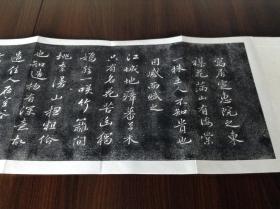 寓居定惠院之東
雜花滿山有海棠
一株土人不知貴也
因感而賦之
江城地瘴蕃草木
只有名花苦幽獨
嫣然一笑竹籬間
桃李漫山總粗俗
也知造物有深意故
遣佳人在空谷